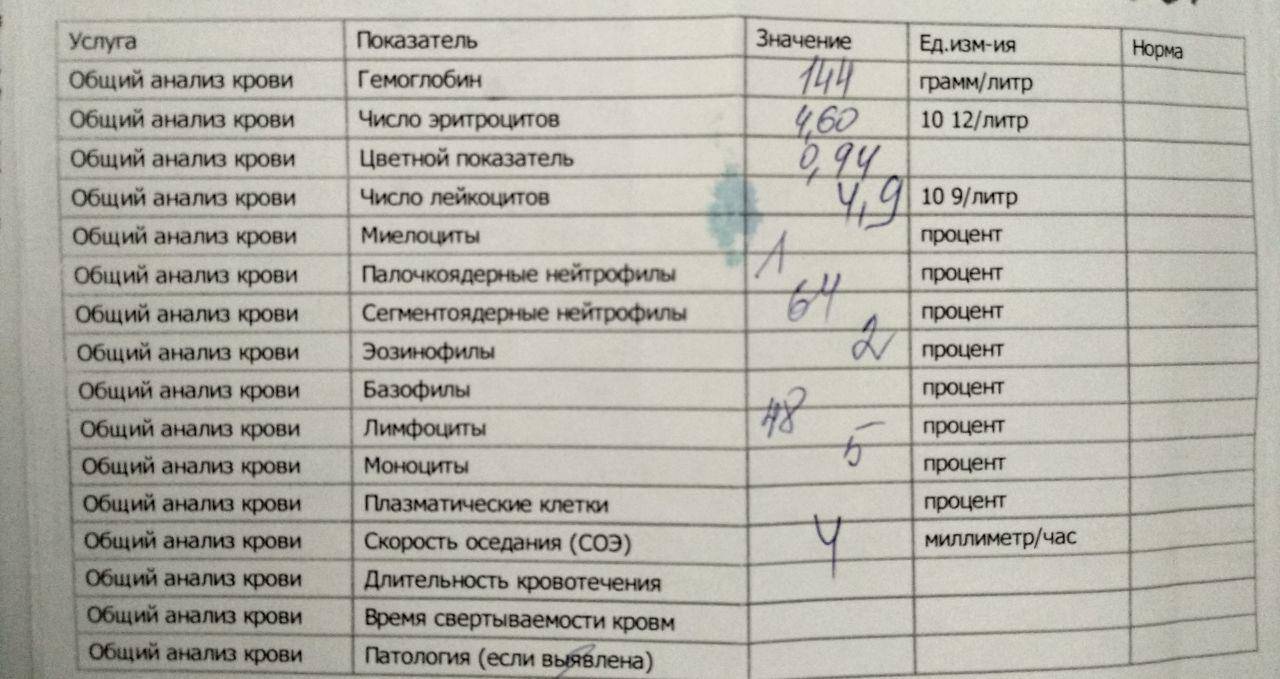 Услуга Показатель Значение Ед.изм-ия Норма
Общий анализ крови Гемоглобин 144 грамм/литр
Общий анализ крови Число эритроцитов 4,60 10 12/литр
Общий анализ крови Цветной показатель 0,94
Общий анализ крови Число лейкоцитов 4,9 10 9/литр
Общий анализ крови Миелоциты процент
Общий анализ крови Палочкоядерные нейтрофилы 1 процент
Общий анализ крови Сегментоядерные нейтрофилы 64 процент
Общий анализ крови Эозинофилы 2 процент
Общий анализ крови Базофилы процент
Общий анализ крови Лимфоциты процент
Общий анализ крови Моноциты 5 процент
Общий анализ крови Плазматические клетки процент
Общий анализ крови Скорость оседания (СОЭ) 4 миллиметр/час
Общий анализ крови Длительность кровотечения
Общий анализ крови Время свертываемости кровм
Общий анализ крови Патология (если выявлена)